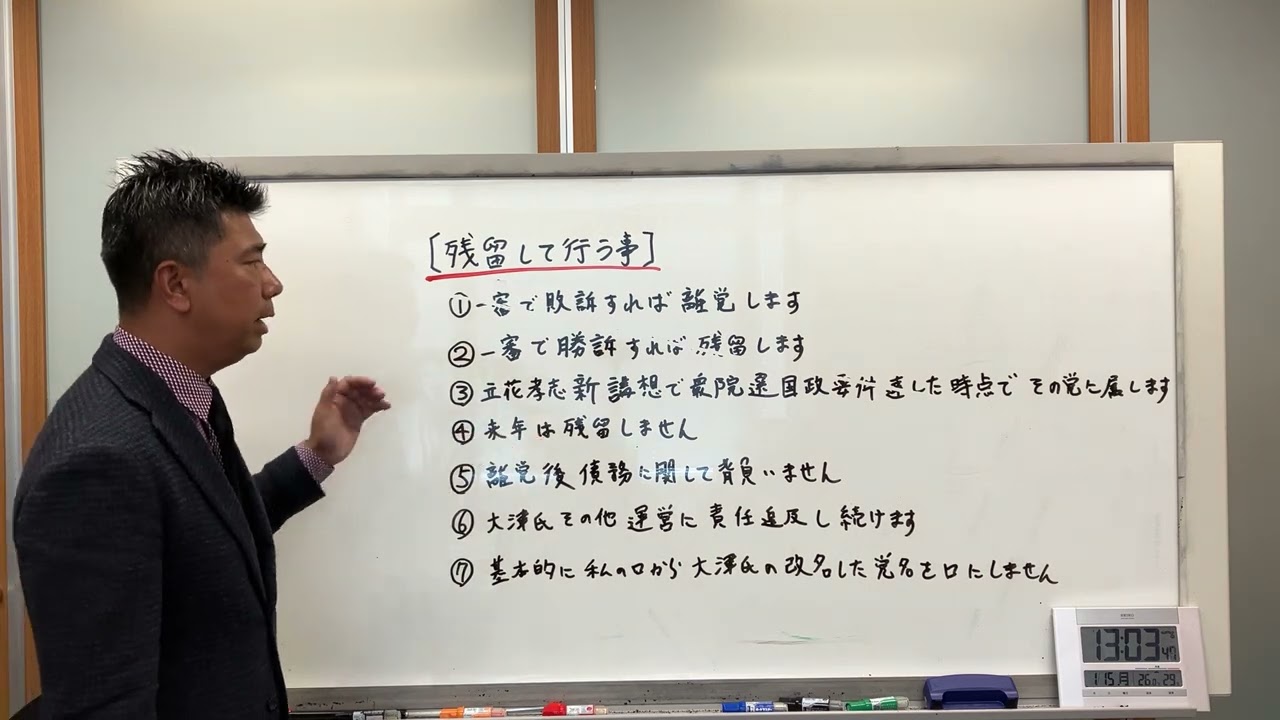 [残留して行う事]
①一審で敗訴すれば離党します
②一審で勝訴すれば残留します
③立花孝志新講想で衆院選国政要件達した時点でその党に属します
④来年は残留しません
⑤離党後債務に関して背負いません
⑥大津氏その他運営に責任追及し続けます
⑦基本的に私の口から大澤氏の改名した党名を口にしません
SEIKO
13:03 47
1 15月 26.0 29